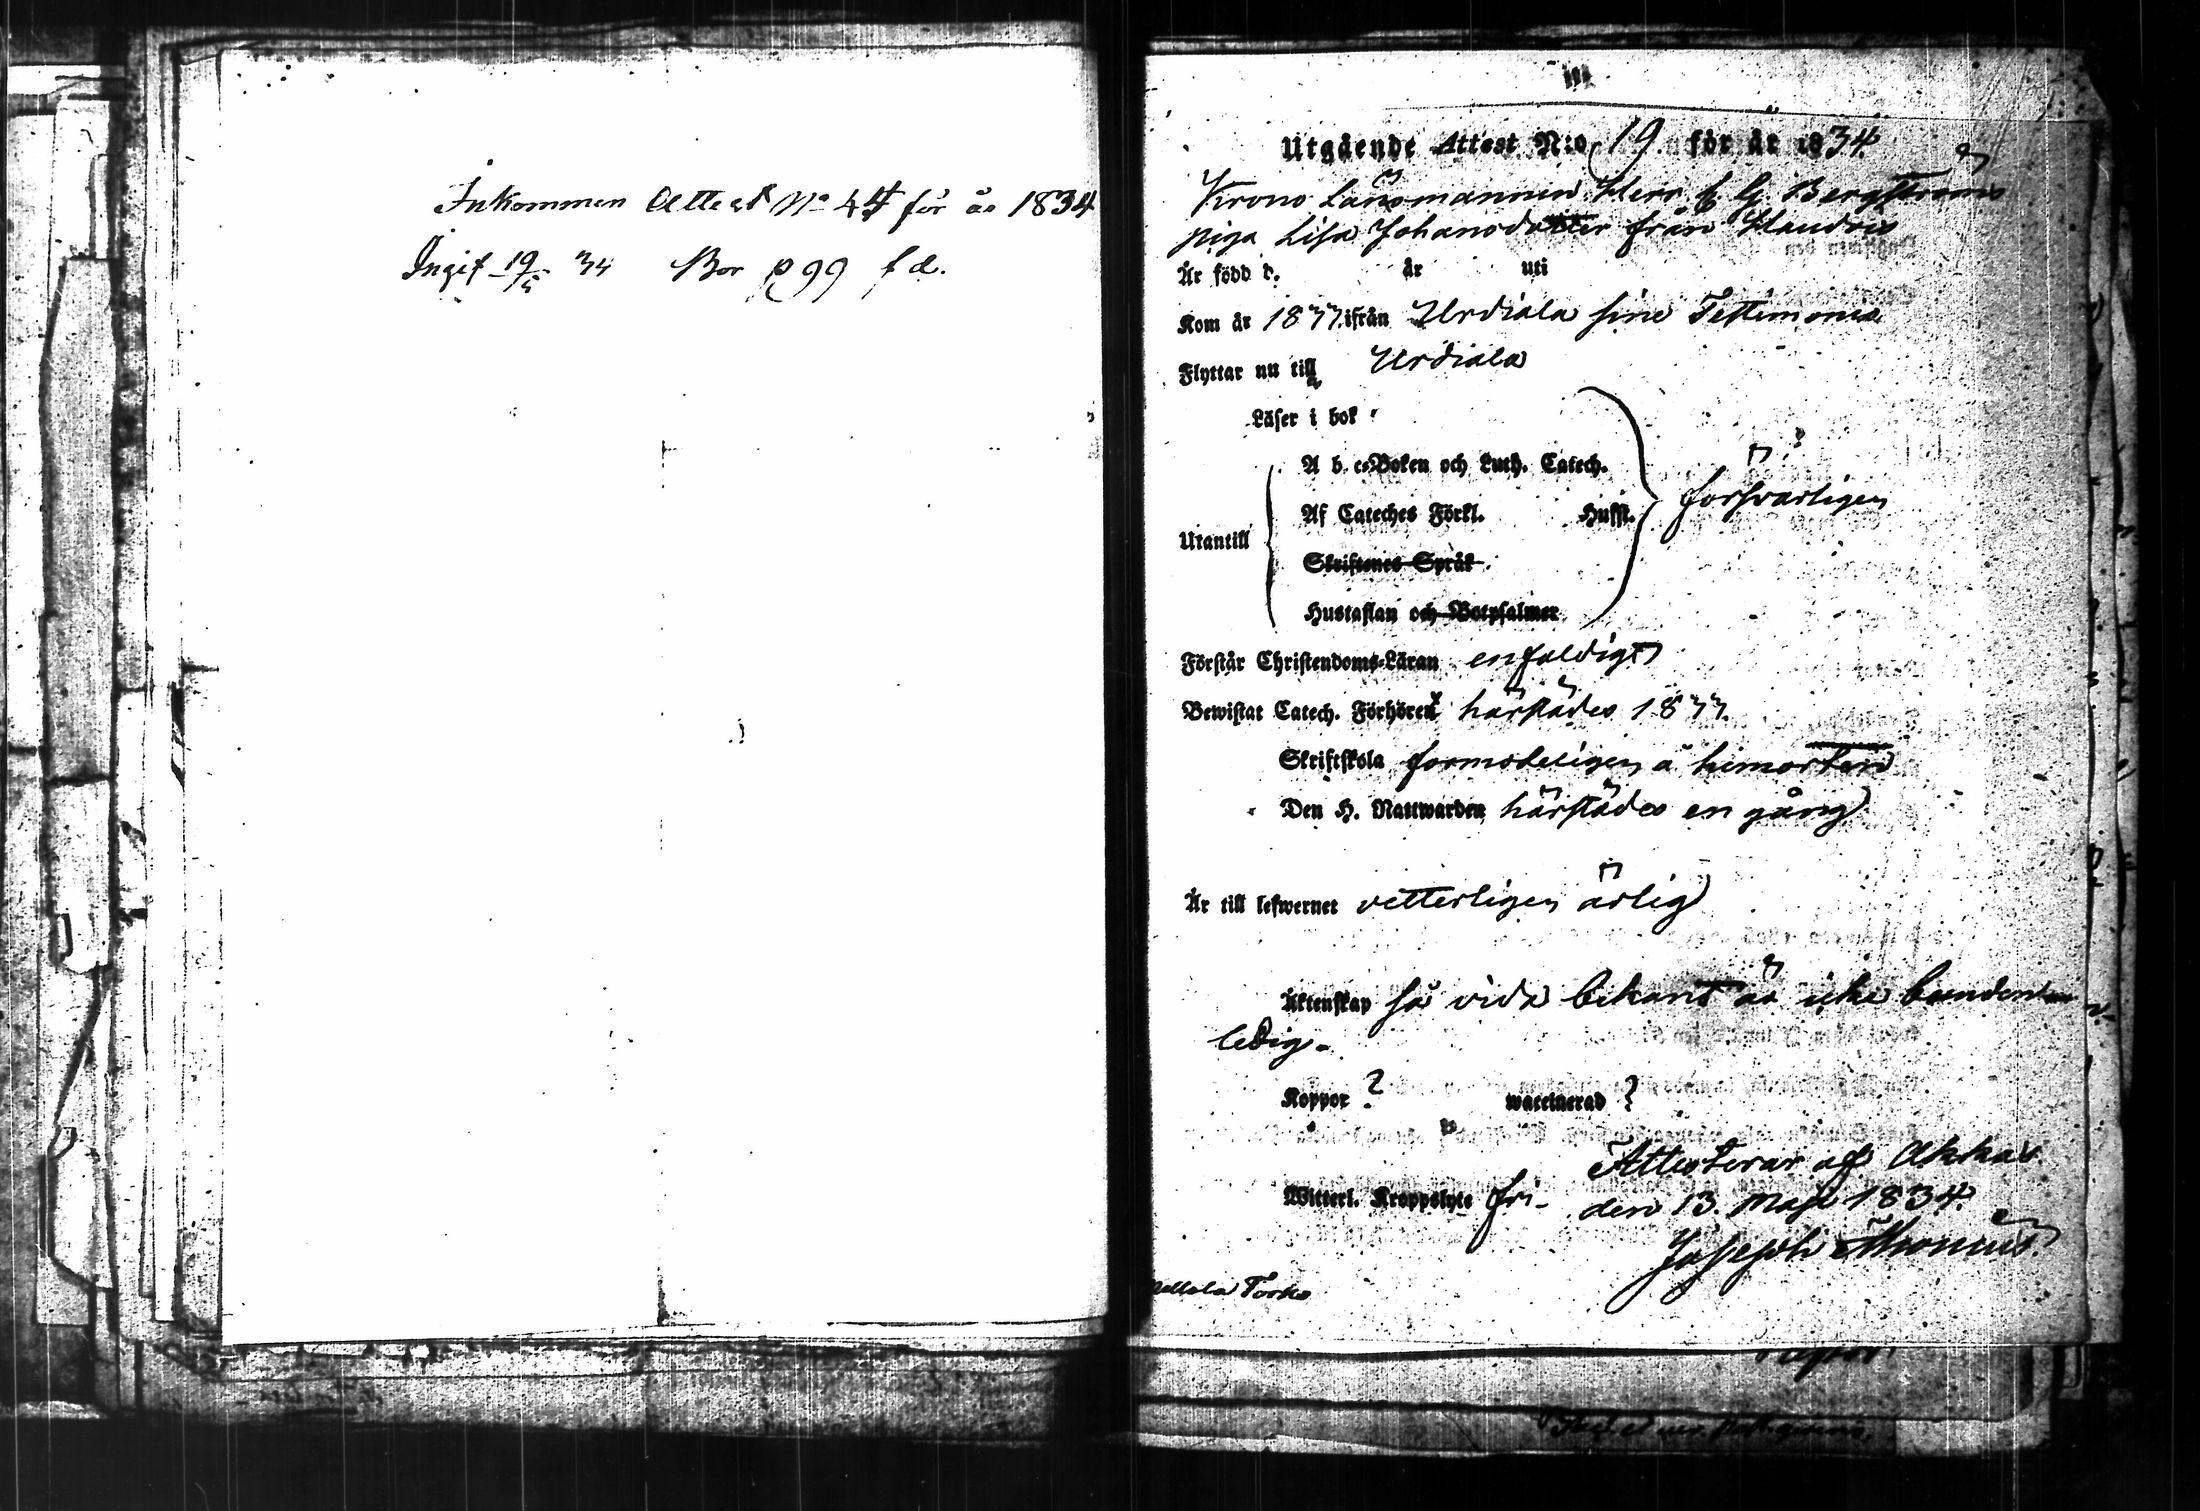 Inkommen Attest No 44 för år 1834
Ingif 19/5 34 Bor p 99 f d.
Utgående Attest N:o 19. för år 1834.
Krono Länsmannen Herr C G Bergströms
piga Lisa Johansdotter från
Är född d. år uti
Kom år 1833. ifrån Urdiala sine Testimonio
Flyttar nu till Urdiala
Läser i bok
A b c-Boken och Luth. Catech.
Af Cateches Förkl. Hufft. försvarligen
Utantill
Skriftenes Språk
Hustaflan och Botpsalmer
Förstår Christendoms-Läran enfaldigt
Bewistat Catech. Förhören härstädes 1833.
Skriftskola formodeligen å hemorten
Den H. Nattwarden härstädes en gång
Är till lefwernet vetterligen ärlig
Äktenskap så vida bekant är icke bunden
ledig-
Koppor ? waccinerad ?
Attesterar af Akkas
Witterl. Kroppslyte fri- den 13. Maji 1834.
Joseph